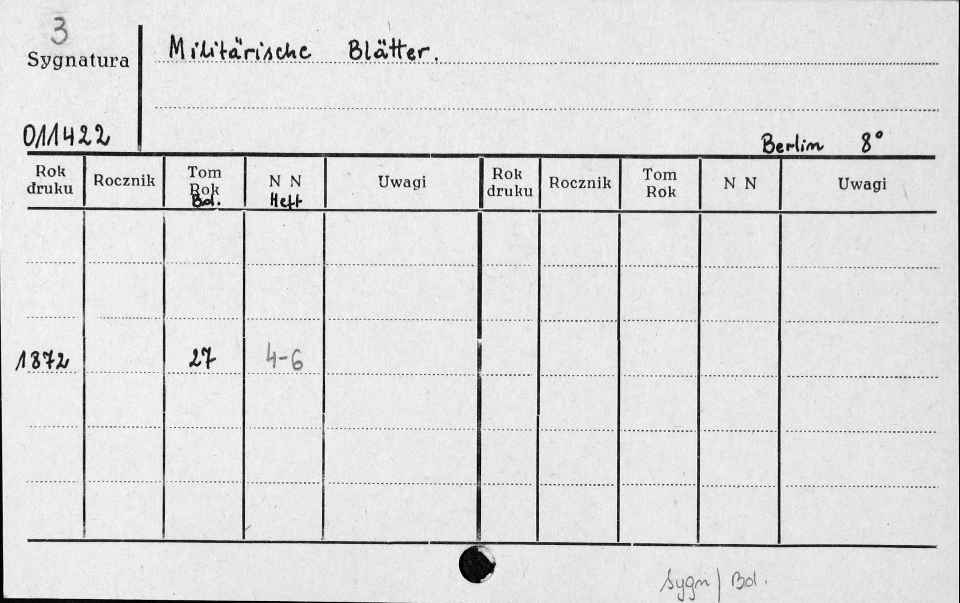 3
Sygnatura
Militärische Blätter.
011422
Berlin 8°
Rok druku Rocznik Tom Rok Bd. N N Heft Uwagi Rok druku Rocznik Tom Rok N N Uwagi
1872 27 4-6
Sygn/Bd.